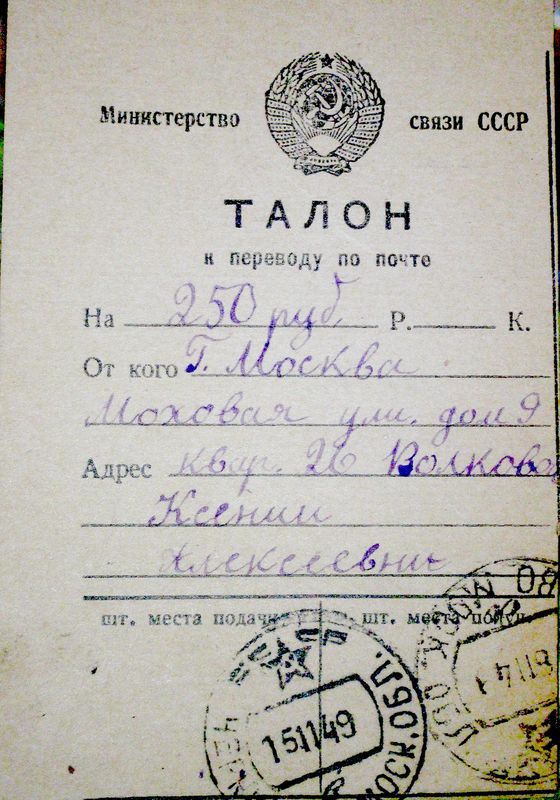 Министерство связи СССР
ТАЛОН
к переводу по почте
На 250 руб. Р. К.
От кого Г. Москва
Моховая ули. дом 9
Адрес квар. 26 Волкова
Ксении
Алексеевны
шт. места подачи шт. места получ.
МОСК. ОБЛ.
151149